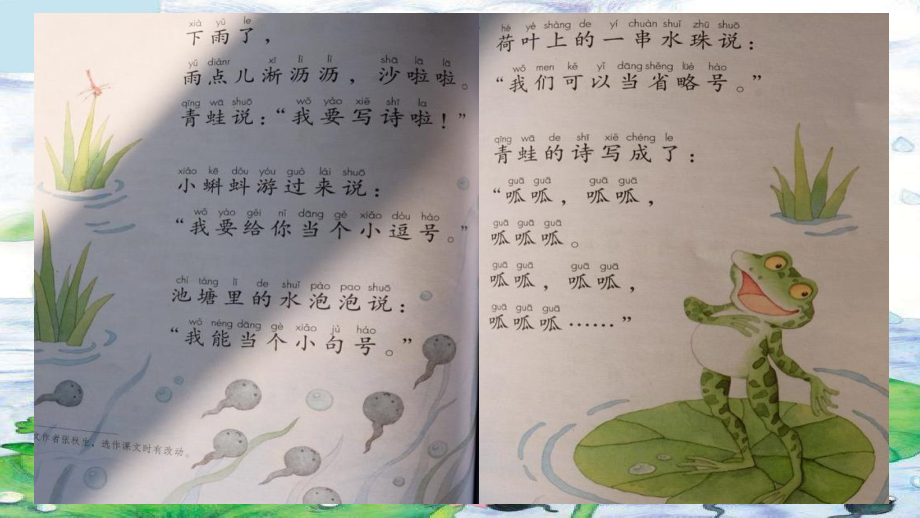 xià yǔ le
下雨了，
yǔ diǎnr xī lì lì shā lā lā
雨点儿淅沥沥，沙啦啦。
qīng wā shuō wǒ yào xiě shī la
青蛙说：“我要写诗啦！”
xiǎo kē dǒu yóu guò lái shuō
小蝌蚪游过来说：
wǒ yào gěi nǐ dāng gè xiǎo dòu hào
“我要给你当个小逗号。”
chí táng lǐ de shuǐ pào pao shuō
池塘里的水泡泡说：
wǒ néng dāng gè xiǎo jù hào
“我能当个小句号。”
作者张秋生，选作课文时有改动。
hé yè shàng de yí chuàn shuǐ zhū shuō
荷叶上的一串水珠说：
wǒ men kě yǐ dāng shěng lüè hào
“我们可以当省略号。”
qīng wā de shī xiě chéng le
青蛙的诗写成了：
guā guā guā guā
“呱呱，呱呱，
guā guā guā
呱呱呱。
guā guā guā guā
呱呱，呱呱，
guā guā guā
呱呱呱……”